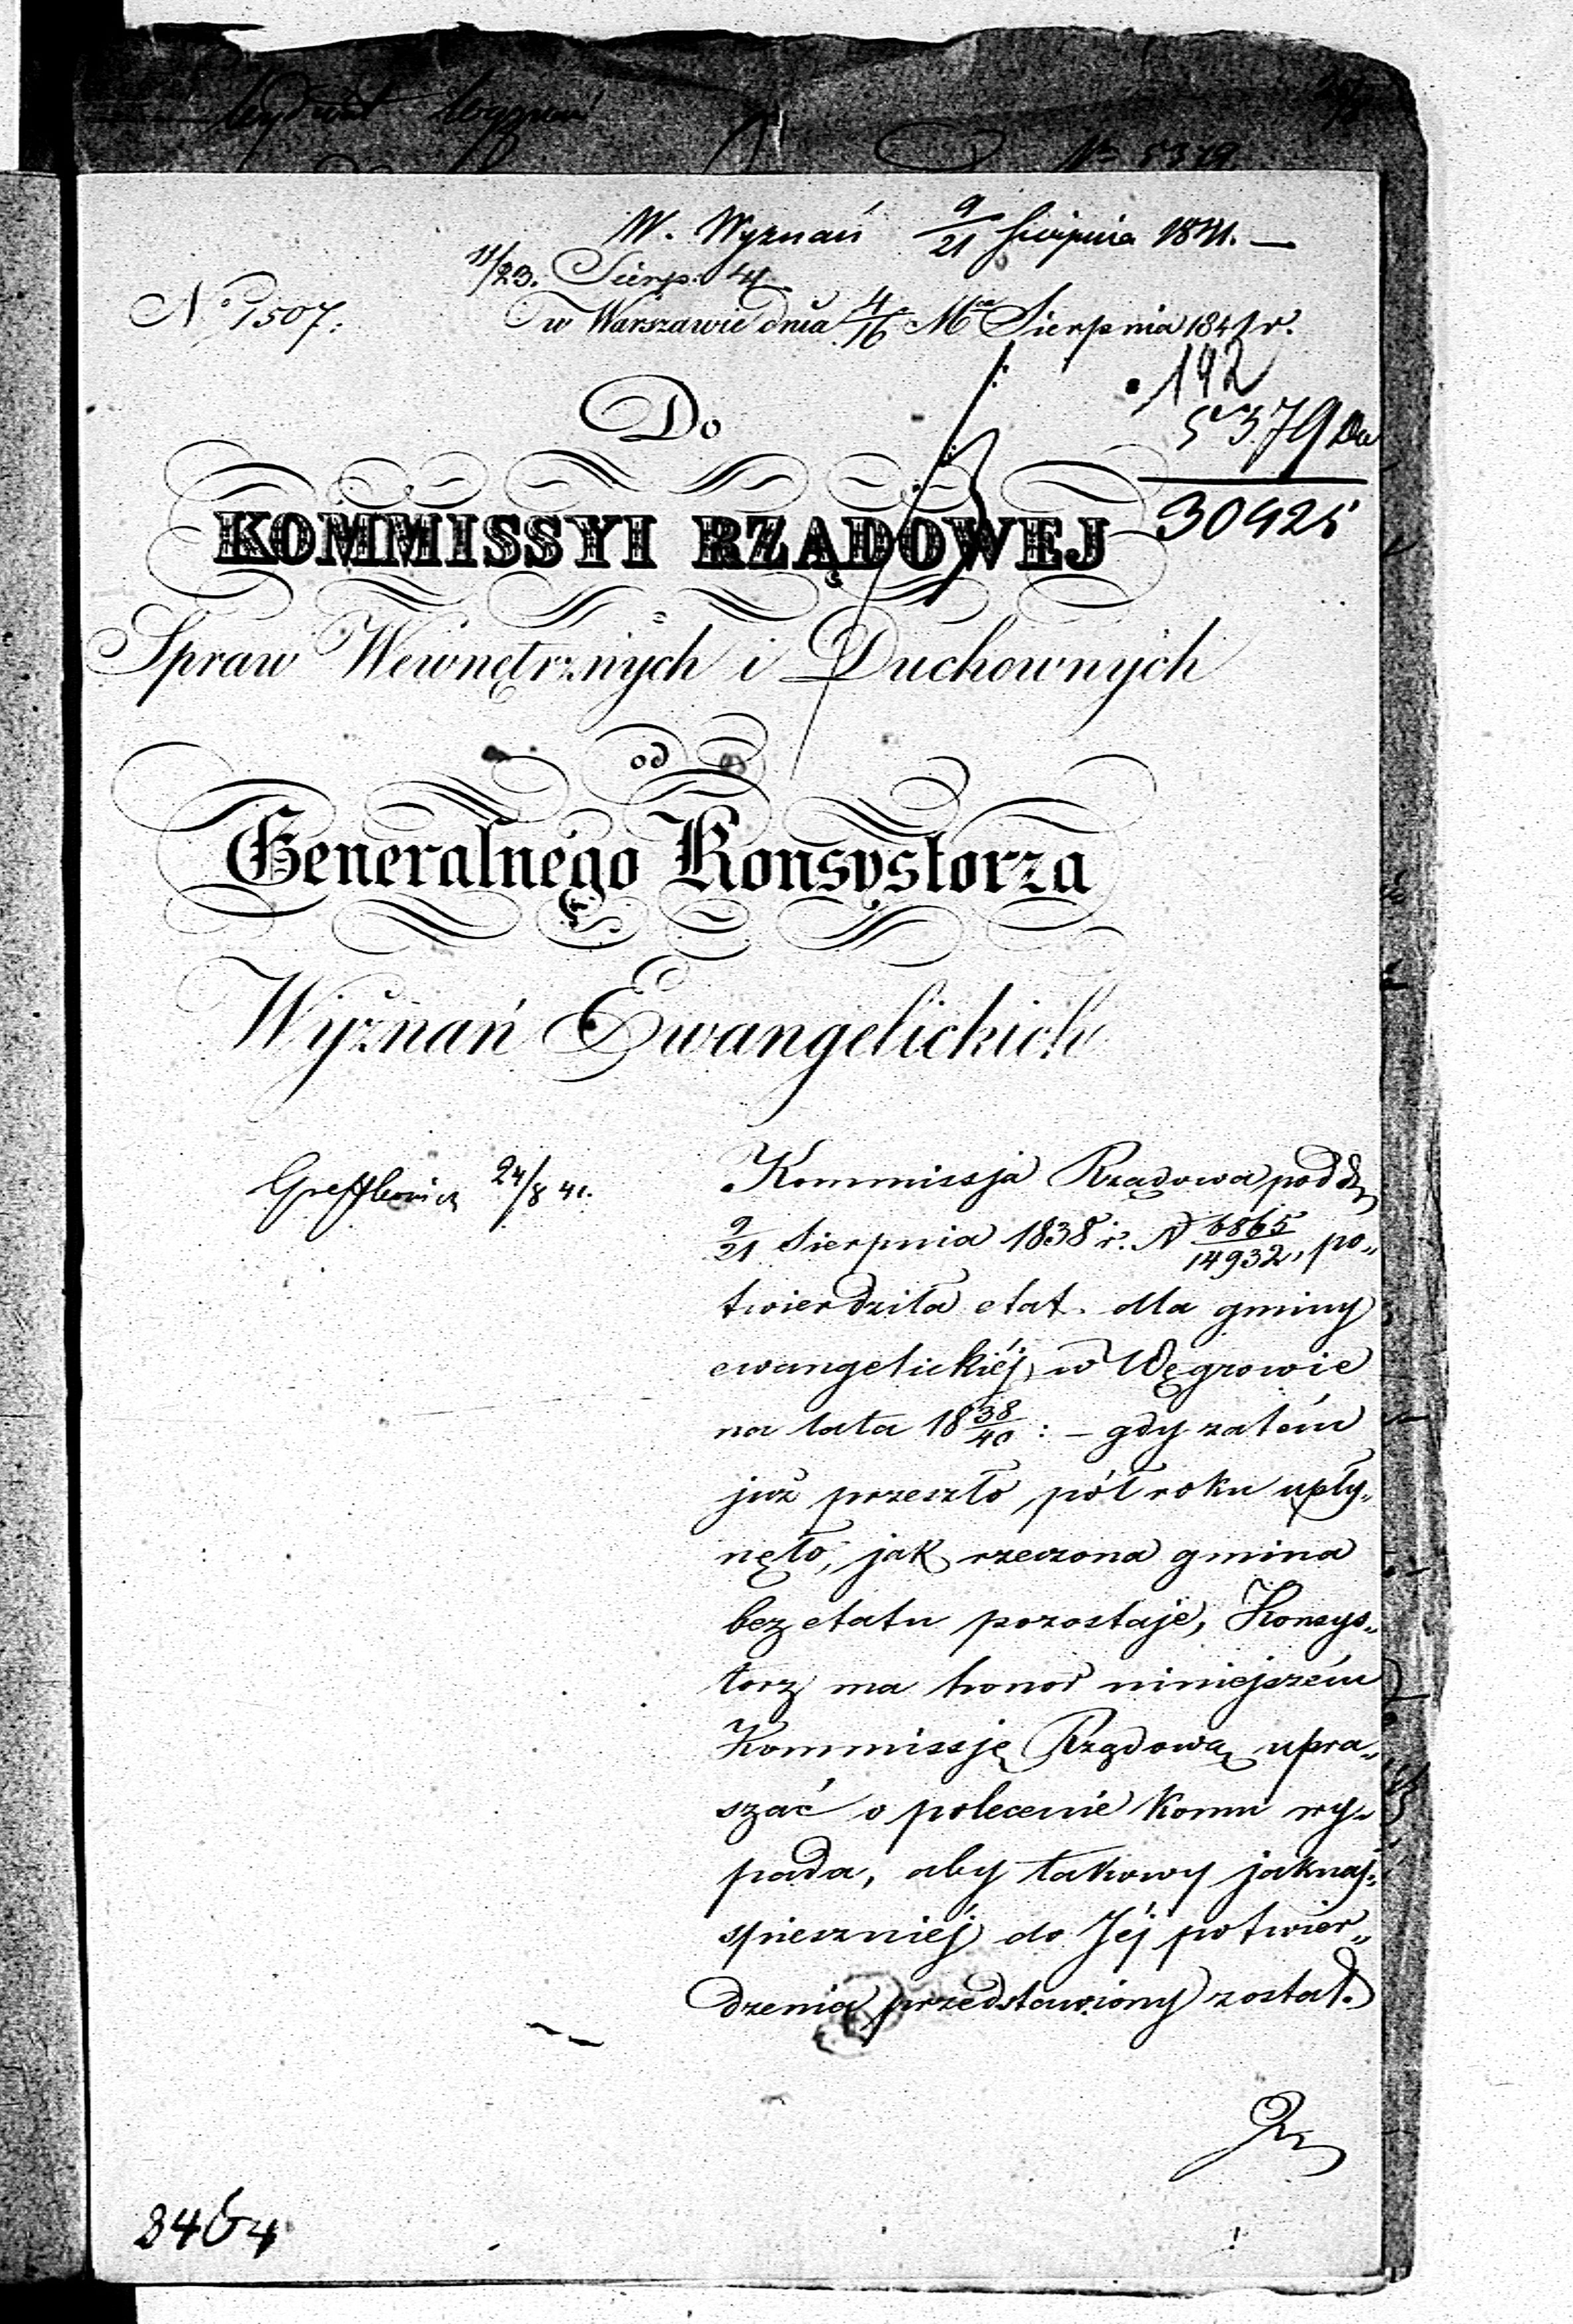 Wydział Wyznań
Nr 5379
W. Wyznań 9/21 Sierpnia 1841. —
11/23. Sierp. 41
No 1507. w Warszawie dnia 4/16 Mca Sierpnia 1841 r.
192
5379
30925
Do
KOMMISSYI RZĄDOWEJ
Spraw Wewnętrznych i Duchownych
od
Generalnego Konsystorza
Wyznań Ewangelickich
24/8 41.
Kommissja Rządowa pod d.
9/21 Sierpnia 1838 r. N 6865/14932, po„
twierdziła etat dla gminy
ewangelickiéj w Węgrowie
na lata 18 38/40 : – gdy zatém
już przeszło pół roku upły„
nęło, jak rzeczona gmina
bez etatu pozostaje, Konsys„
torz ma honor niniejszém
Kommissję Rządową upra„
szać o polecenie komu wy„
pada, aby takowy jaknaj„
spieszniéj do Jéj potwier„
dzenia przedstawiony został.
8464